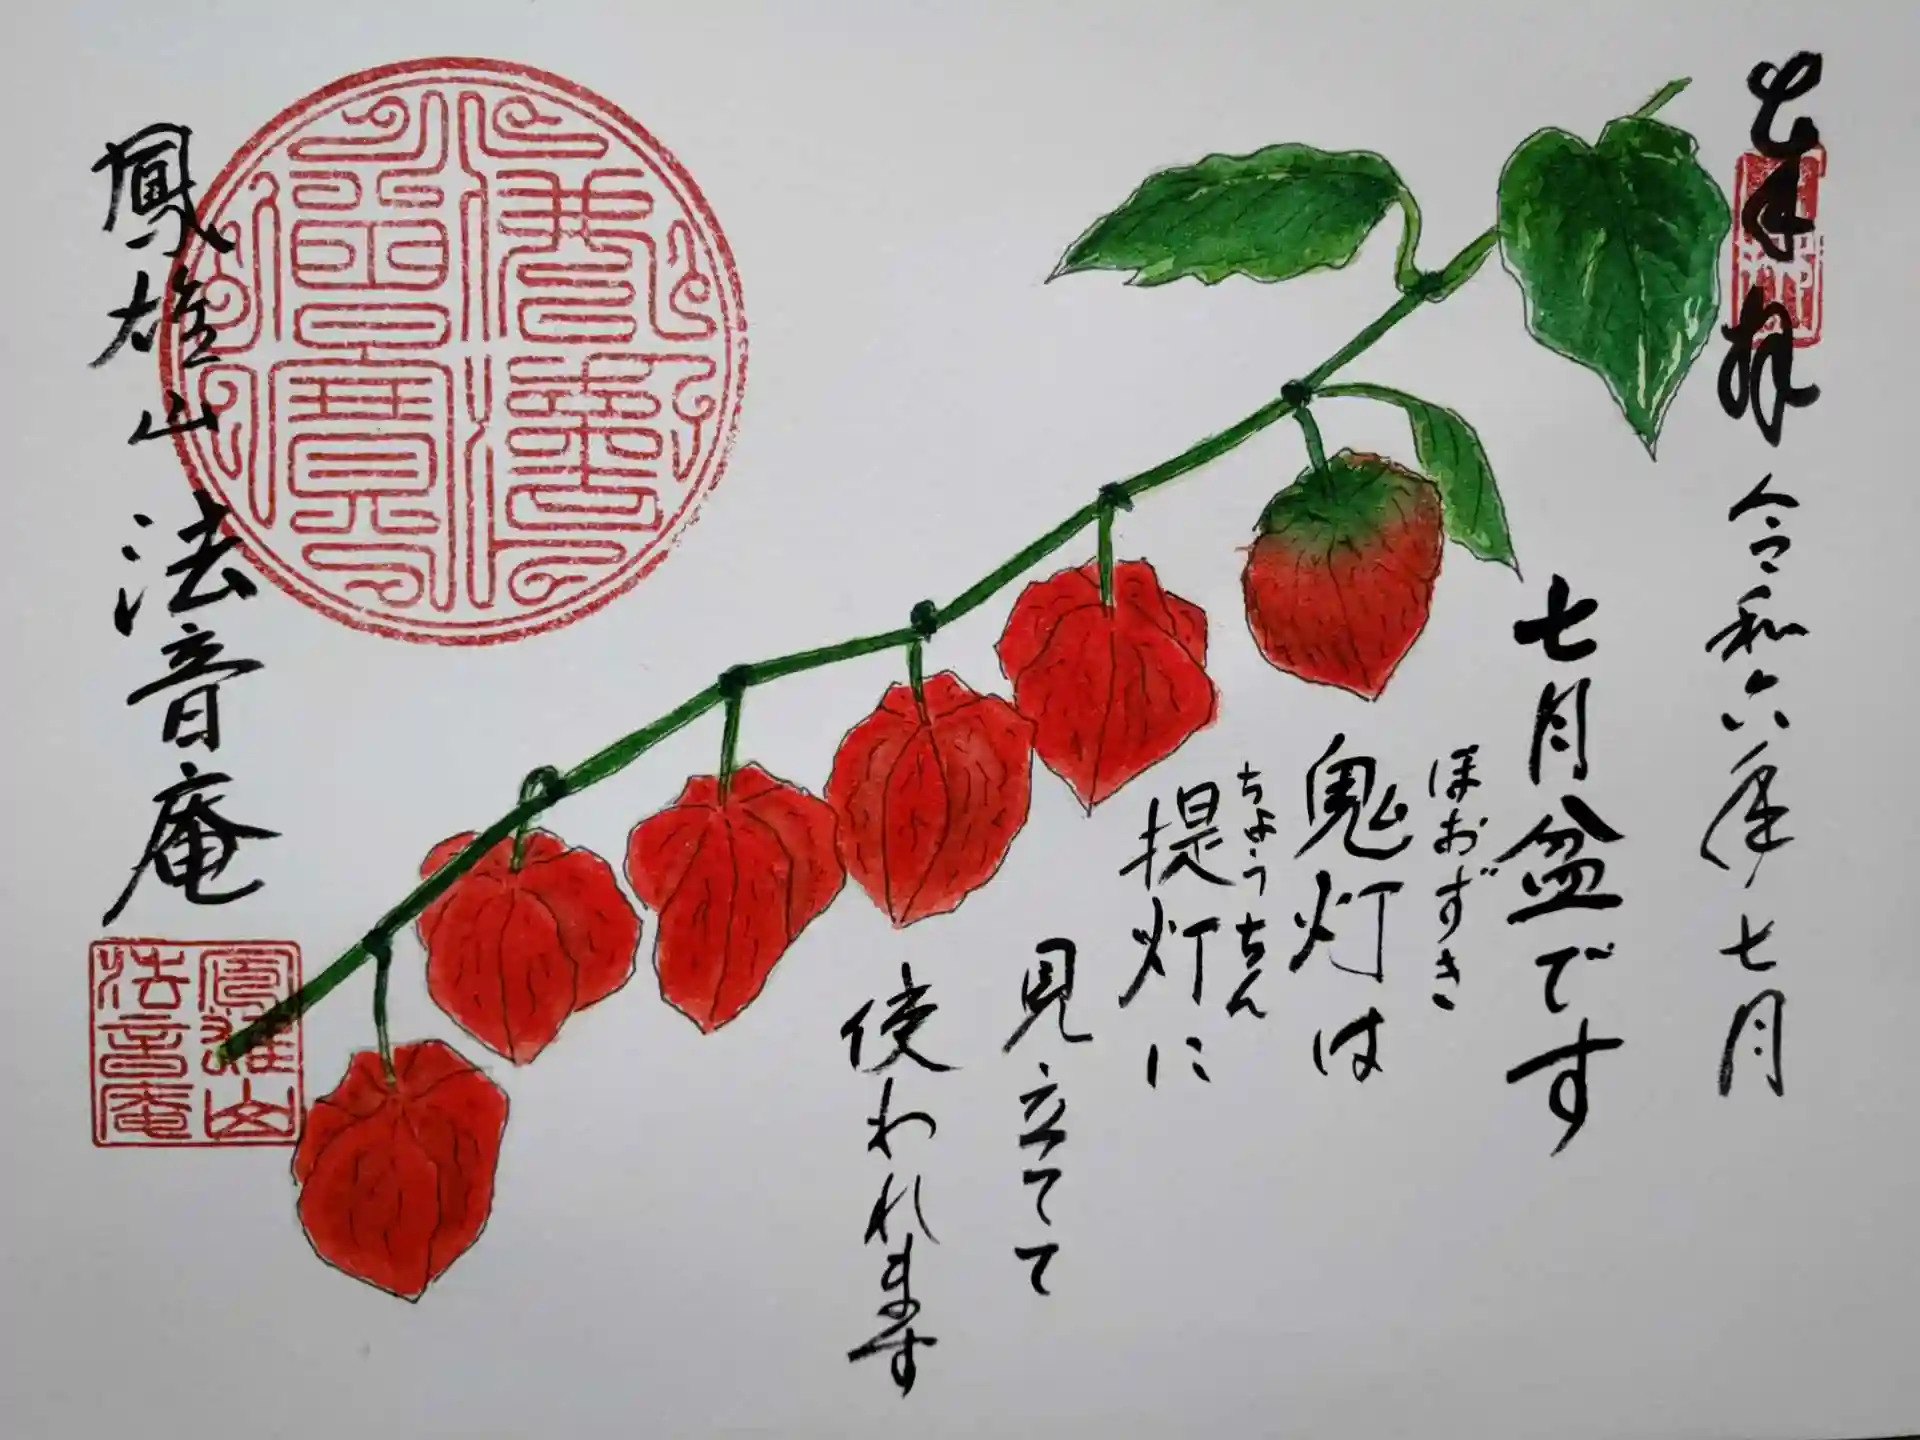 奉拝
令和六年七月
七月盆です
ほおずき
鬼灯は
ちょうちん
提灯に
見立てて
使われます
佛法僧寳
鳳雄山 法音庵
鳳雄山
法音庵